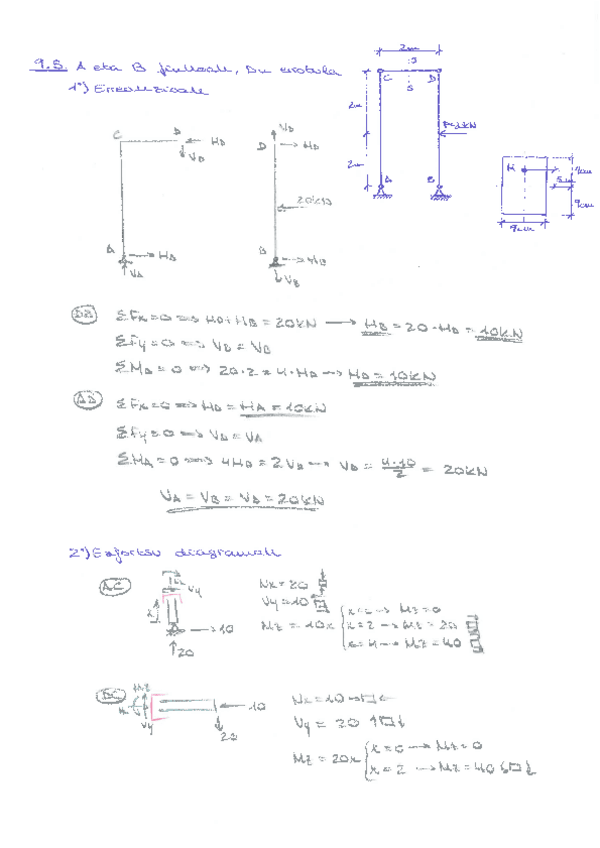 9.5. A eta B finkoak, D artikula
1º) Erreakzioak
2m
S
C D
S
2m
P=20kN
2m
A B
M
9cm
5cm
9cm
9cm
C D HD
VD
A HA
VA
VD
D HD
20kN
B HB
VB
DB
ΣFx=0 ⟹ HD+HB = 20kN ⟶ HB = 20-HD = 10kN
ΣFy=0 ⟹ VD = VB
ΣMB = 0 ⟹ 20·2 = 4·HD ⟶ HD = 10kN
AD
ΣFx=0 ⟹ HD = HA = 10kN
ΣFy=0 ⟹ VD = VA
ΣMA=0 ⟹ 4HD = 2VD ⟶ VD = 4·10/2 = 20kN
VA = VB = VD = 20kN
2º) Esfortzu diagramak
AC
Vy
x
10
20
Nx = 20
Vy = 10
Mz = 10x
x=2 → Mz = 20
x=4 → Mz = 40
DC
Mz
Vy
10
20
Nx = 10
Vy = 20
Mz = 20x
x = 0 → Mz = 0
x = 2 → Mz = 40